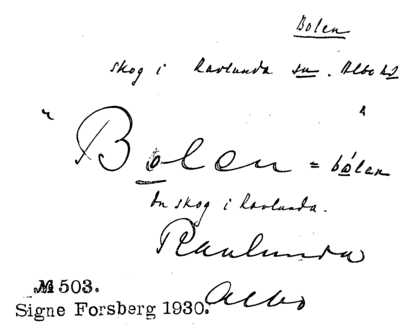 Bolen
skog i Ravlunda sn. Albo hd
Bolen = bólan
En skog i Ravlunda.
Ravlunda
Albo
№ 503.
Signe Forsberg 1930.